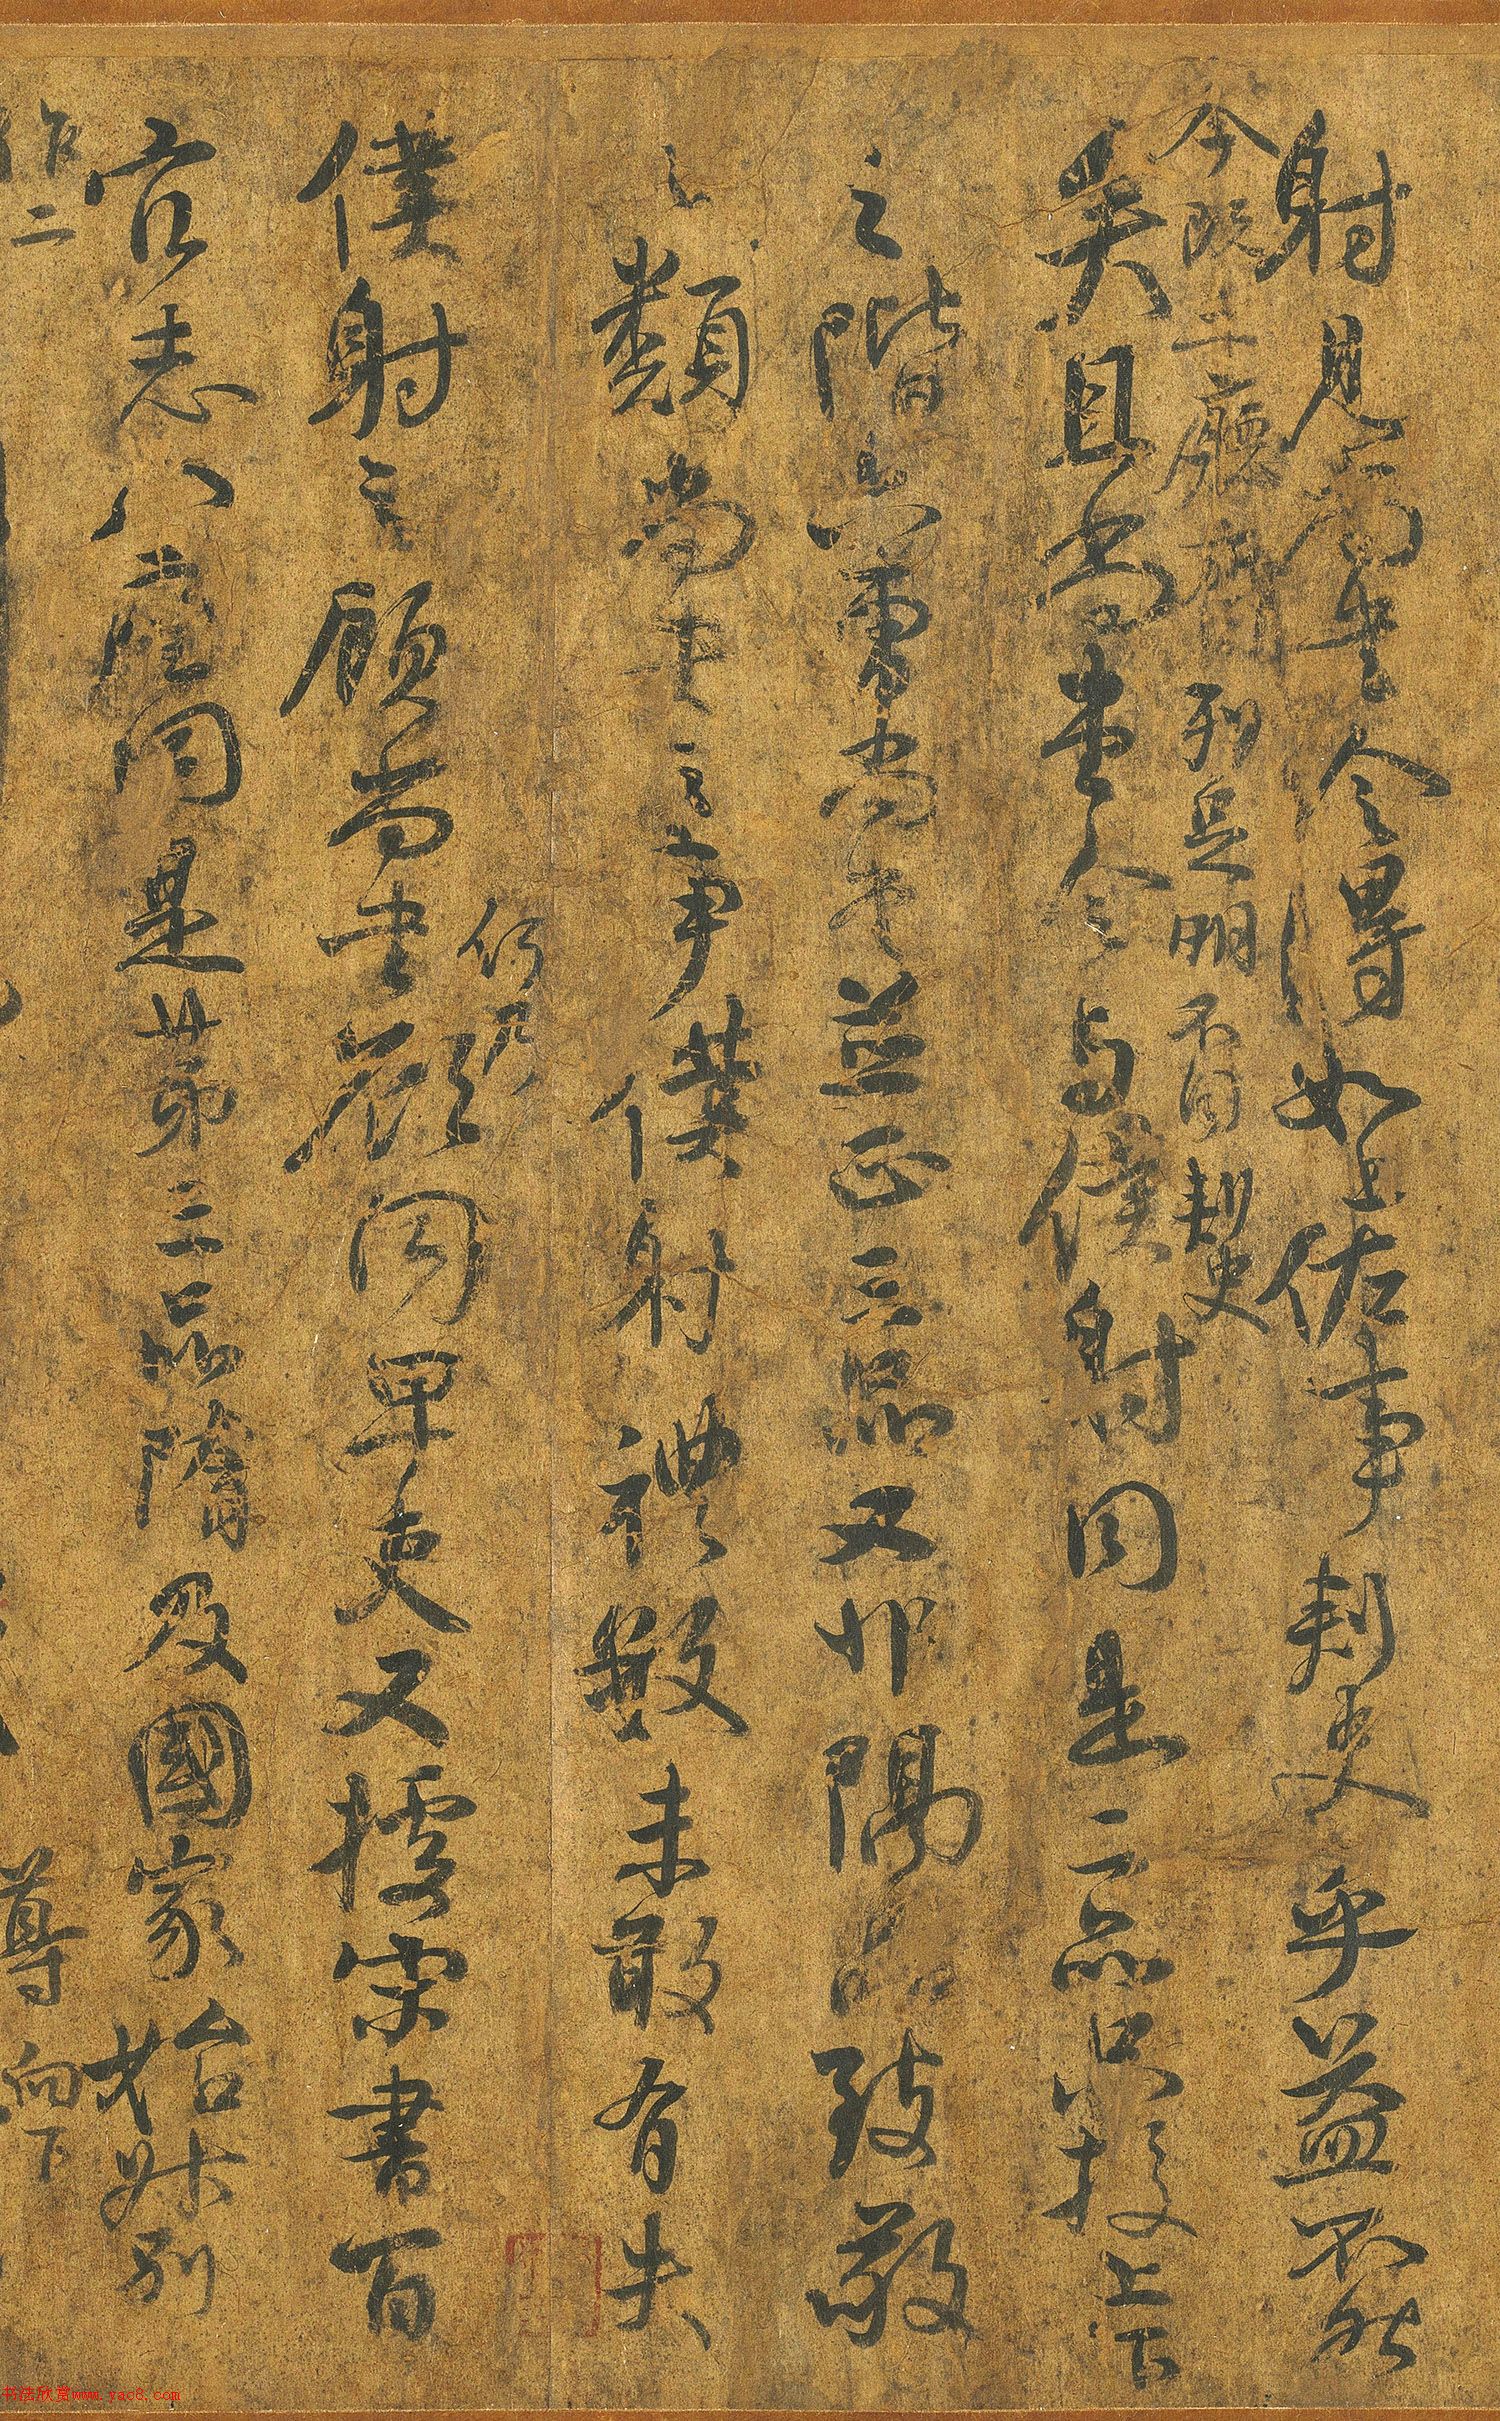 射見尚書令得如上佐事刺史乎益不然
今既三廳齊列足明不同刺史
矣且尚書令與僕射同是二品只校上下
之階六曹尚書並正三品又非隔品致敬
之類尚書之事僕射禮數未敢有失
何乃
僕射之顧尚書欲同卑吏又據宋書百
官志八座同是第三品隋及國家始升別
作二
尊向下
书法欣赏www.yac8.com